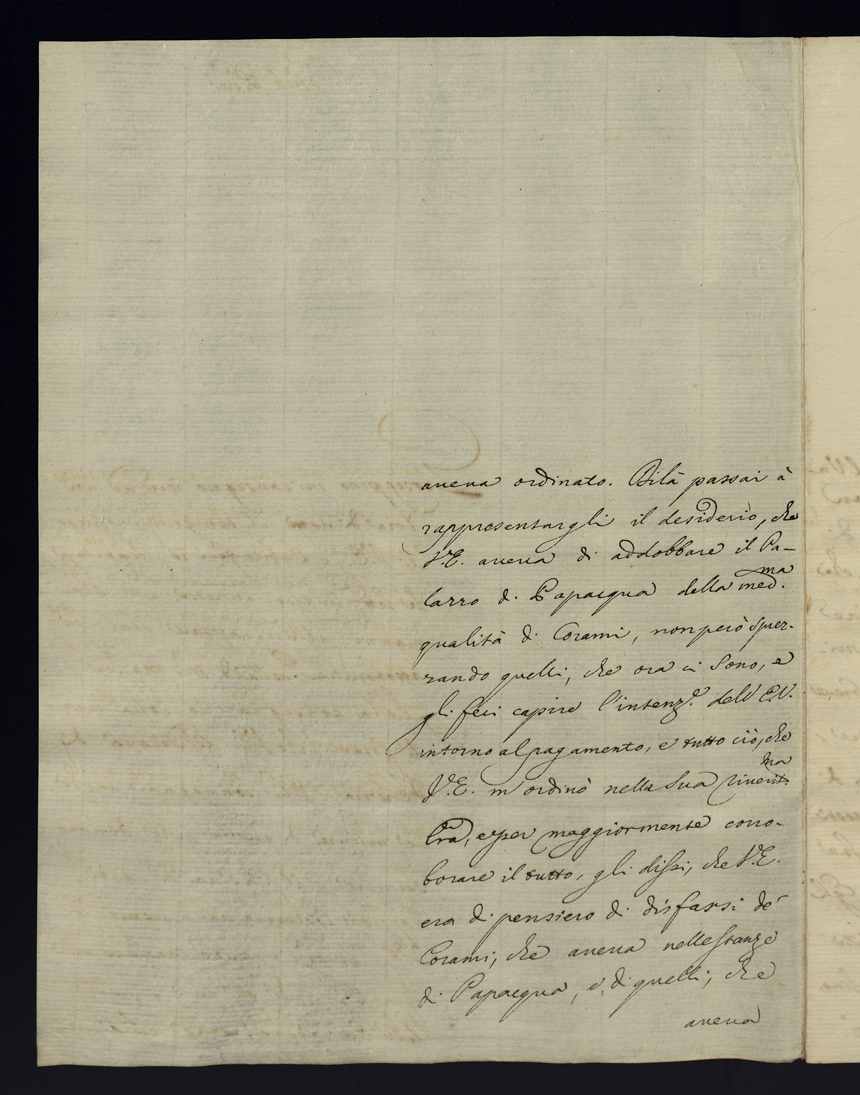 aueua ordinato. Di là passai à
rappresentargli il desiderio, che
V.E. aueua di addobbare il Pa-
lazzo di Papacqua della med.ma
qualità di Corami, non però sprez-
zando quelli, che ora ci sono, e
gli feci capire l'intenz.e dell'E.V.
intorno al pagamento, e tutto ciò, che
V.E. m'ordinò nella sua riuerit.ma
lra, e per maggiormente corro-
borare il tutto, gli dissi, che V.E.
era di pensiero di disfarsi de'
Corami, che aueua nelle stanze
di Papacqua, e di quelli, che
aueua